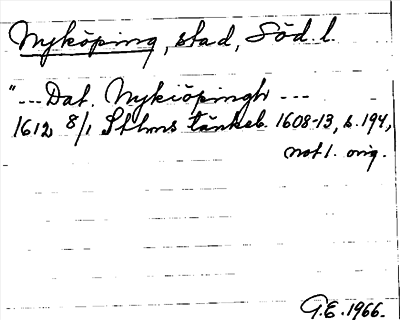 Nyköping, stad, Söd. l.
"--- Dat. Nykiöpingh ---
1612 8/1 Sthms tänkeb. 1608-13, s. 194,
not 1. orig.
G.E. 1966.